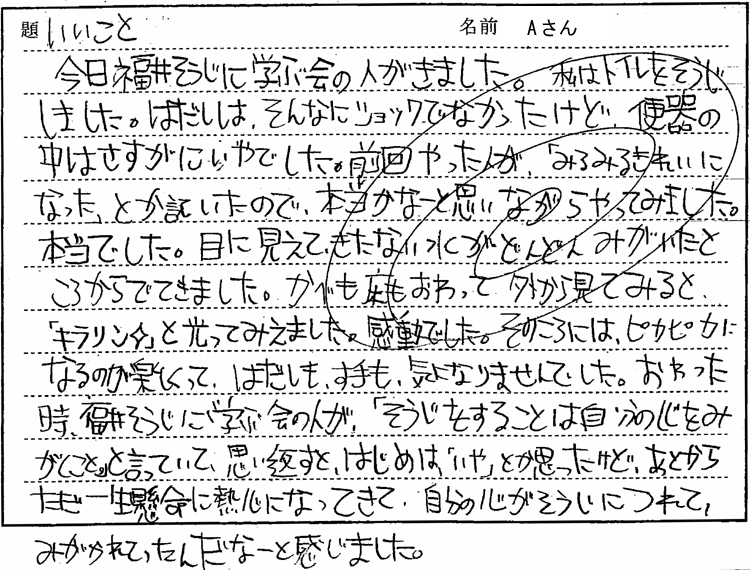 題 いいこと 名前 Aさん
今日福井そうじに学ぶ会の人がきました。私はトイレをそうじ
しました。はだしは、そんなにショックでなかったけど、便器の
中はさすがにいやでした。前回やった人が、「みるみるきれいに
なった」とか言っていたので、本当かなーと思いながらやってみました。
本当でした。目に見えてきたない水がどんどんみがいたと
ころからでてきました。かべも床もおわって外から見てみると、
「キラリン☆」と光ってみえました。感動でした。そのころには、ピカピカに
なるのが楽しくって、はだしも、す手も、気になりませんでした。おわった
時、福井そうじに学ぶ会の人が、「そうじをすることは自分の心をみ
がくこと。」と言っていて、思い返すと、はじめは、「いや」とか思ったけど、あとから
ただ一生懸命に熱心になってきて、自分の心がそうじにつれて、
みがかれてったんだなーと感じました。